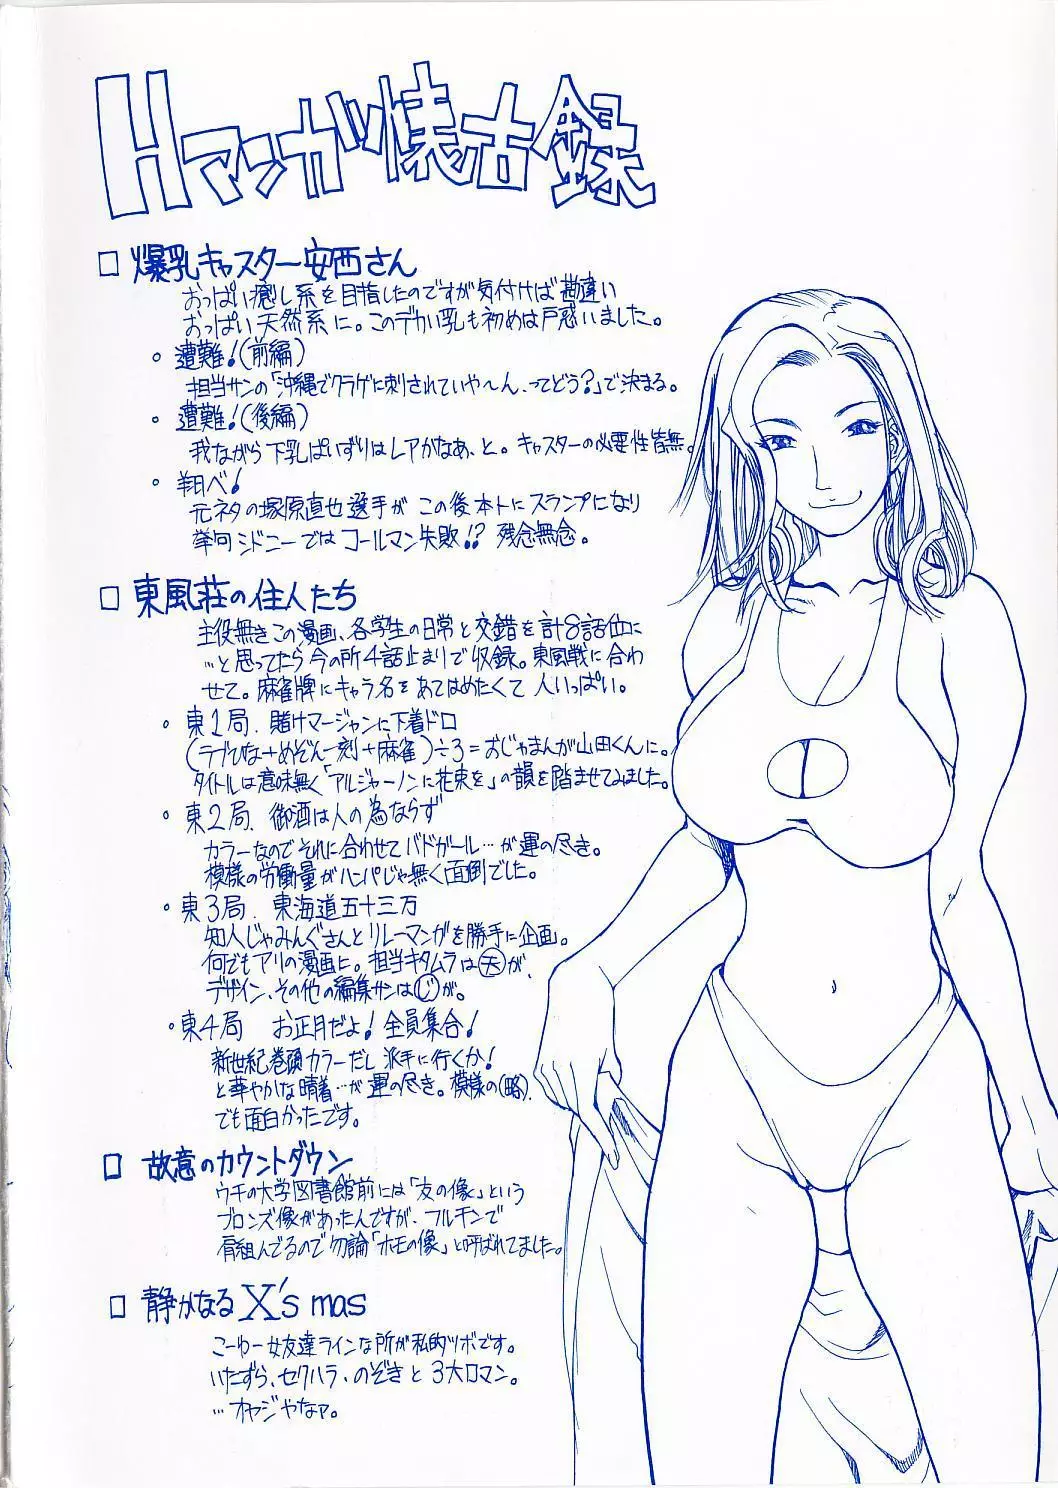 Hマンガ懐古録
□ 爆乳キャスター安西さん
おっぱい癒し系を目指したのですが気付けば勘違い
おっぱい天然系に。このデカい乳も初めは戸惑いました。
・遭難!(前編)
担当サンの「沖縄でクラゲに刺されていや〜ん、ってどう?」で決まる。
・遭難!(後編)
我ながら下乳ぱいずりはレアかなぁ、と。キャスターの必要性皆無。
・翔べ!
元ネタの塚原直也選手がこの後本トにスランプになり
挙句シドニーではコールマン失敗!? 残念無念。
□ 東風荘の住人たち
主役無きこの漫画、各学生の日常と交錯を計8話位に
…と思ってたら今の所4話止まりで収録。東風戦に合わ
せて。麻雀牌にキャラ名をあてはめたくて人いっぱい。
・東1局. 賭けマージャンに下着ドロ
(ラブひな+めぞん一刻+麻雀)÷3=おじゃまんが山田くんに。
タイトルは意味無く「アルジャーノンに花束を」の韻を踏ませてみました。
・東2局. 御酒は人の為ならず
カラーなのでそれに合わせてバドガール…が運の尽き。
模様の労働量がハンパじゃ無く面倒でした。
・東3局. 東海道五十三万
知人じゃみんぐさんとリレーマンガを勝手に企画。
何でもアリの漫画に。担当キタムラは㊝が、
デザイン、その他の編集サンはじが。
・東4局 お正月だよ!全員集合!
新世紀巻頭カラーだし派手に行くか!
と華やかな晴着…が運の尽き。模様の(略).
でも面白かったです。
□ 故意のカウントダウン
ウチの大学図書館前には「友の像」という
ブロンズ像があったんですが、フルチンで
肩組んでるので勿論「ホモの像」と呼ばれてました。
□ 静かなるX's mas
こーゆー女友達ラインな所が私的ツボです。
いたずら、セクハラ、のぞきと3大ロマン。
…オヤジやなァ。